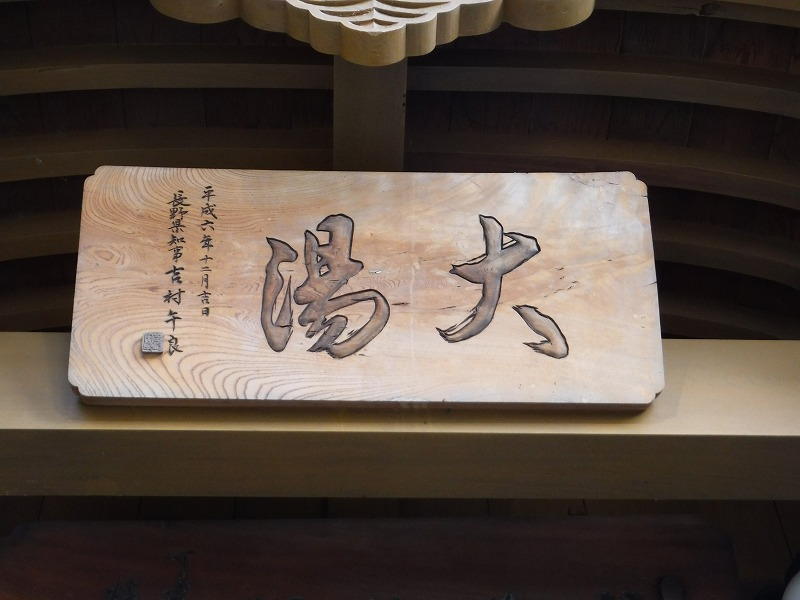 大湯
平成六年十二月吉日
長野県知事吉村午良